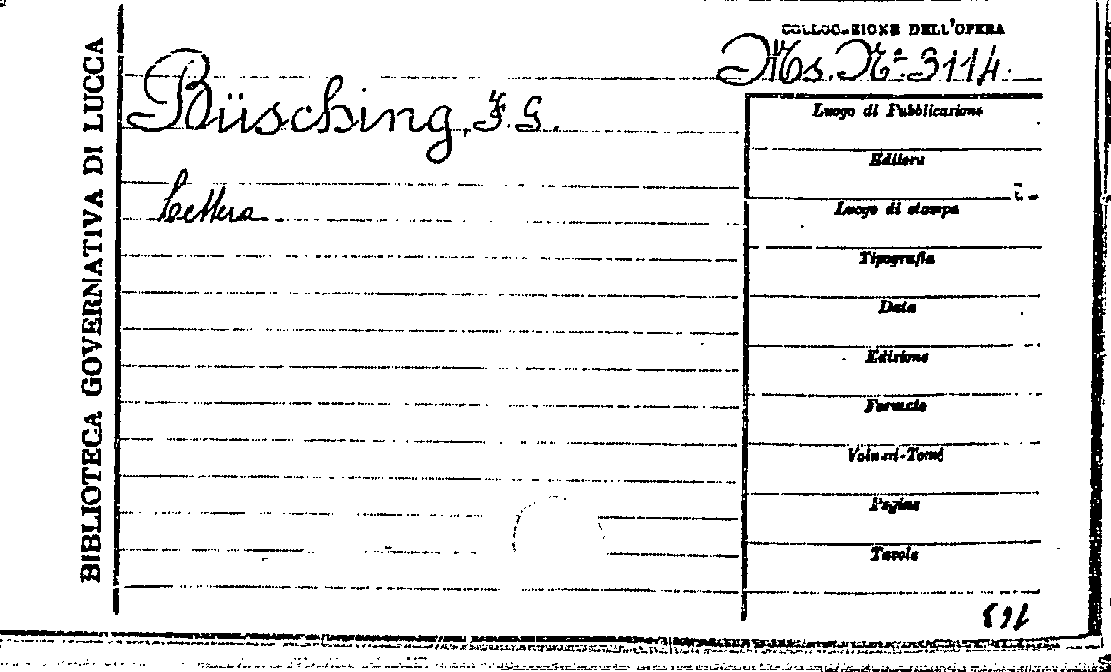 BIBLIOTECA GOVERNATIVA DI LUCCA
COLLOCAZIONE DELL'OPERA
Ms. Nº 3114.
Büsching, F. G.
Lettera
Luogo di Pubblicazione
Editore
Luogo di stampa
Tipografia
Data
Edizione
Formato
Volumi-Tomi
Pagine
Tavole